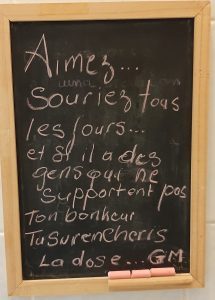 Aimez...
souriez tous
les jours...
et si il a des
gens qui ne
supportent pas
Ton bonheur
Tu surencheris
La dose... GM